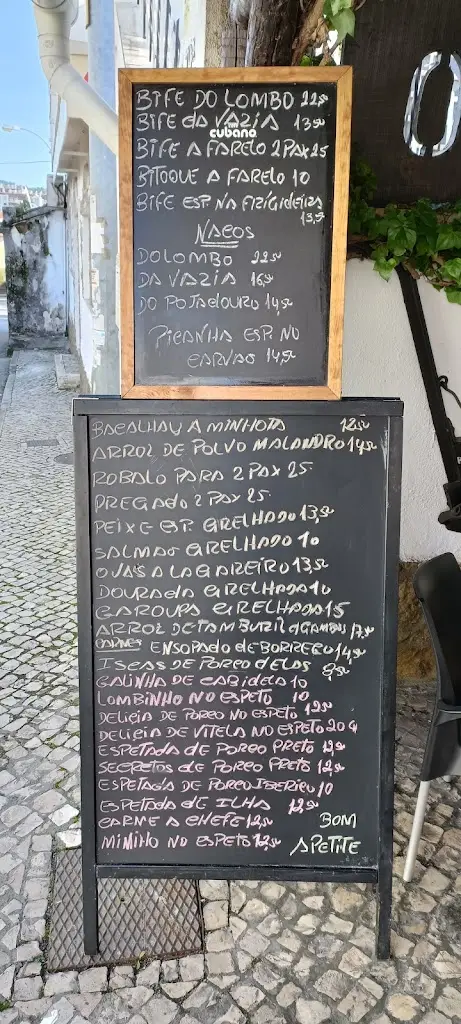 BIFE DO LOMBO 22,50
BIFE da VAZIA 13,50
cubano
BIFE A FARELO 2 PAX 25
BITOQUE A FARELO 10
BIFE ESP. NA FRIGIDEIRA
13,50
NACOS
DO LOMBO 22,50
DA VAZIA 16,50
DO POJADOURO 14,50
PICANHA ESP. NO
CARVAO 14,50
O
BACALHAU A MINHOTA 12,50
ARROZ DE POLVO MALANDRO 14,50
ROBALO PARA 2 PAX 25
PREGADO 2 PAX 25
PEIXE ESP. GRELHADO 13,50
SALMAO GRELHADO 10
OVAS A LAGAREIRO 13,50
DOURADA GRELHADA 10
GAROUPA GRELHADA 15
ARROZ DE TAMBURIL d GAMBAS 17,50
CARNES ENSOPADO de BORREGO 14,50
ISCAS DE PORCO d ELAS 9,50
GALINHA DE CABIDELA 10
LOMBINHO NO ESPETO 10
DELICIA DE PORCO NO ESPETO 12,50
DELICIA DE VITELA NO ESPETO 20 €
ESPETADA DE PORCO PRETO 12,50
SECRETOS DE PORCO PRETO 12,50
ESPETADA DE PORCO IBERICO 10
ESPETADA DE ILHA 12,50
CARNE A CHEFE 12,50 BOM
MIMINHO NO ESPETO 12,50 APETITE